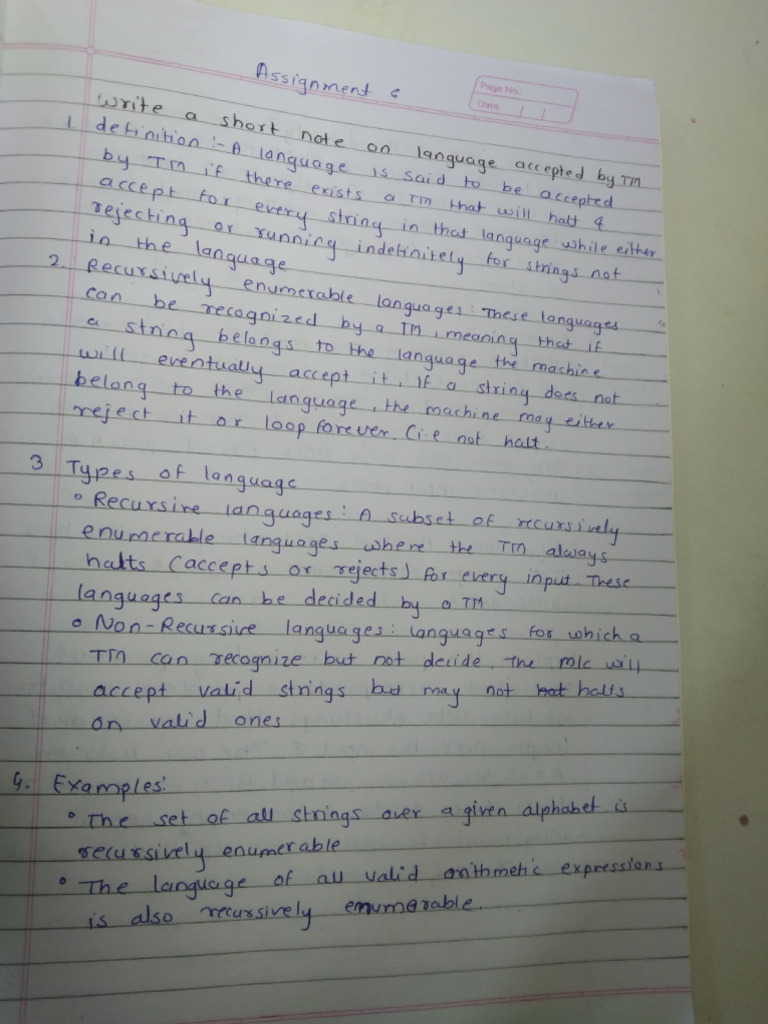 Assignment 6
Page No.:
Date. / /
Write a short note on language accepted by TM
1. definition :- A language is said to be accepted
by TM if there exists a TM that will halt &
accept for every string in that language while either
rejecting or running indefinitely for strings not
in the language
2. Recursively enumerable languages: These languages
can be recognized by a TM, meaning that if
a string belongs to the language the machine
will eventually accept it. If a string does not
belong to the language, the machine may either
reject it or loop forever. (i.e not halt.
3 Types of language
• Recursive languages: A subset of recursively
enumerable languages where the TM always
halts (accepts or rejects) for every input. These
languages can be decided by a TM
• Non-Recursive languages: languages for which a
TM can recognize but not decide. The m/c will
accept valid strings but may not halts
on valid ones
4. Examples:
• The set of all strings over a given alphabet is
recursively enumerable
• The language of all valid arithmetic expressions
is also recursively enumerable.